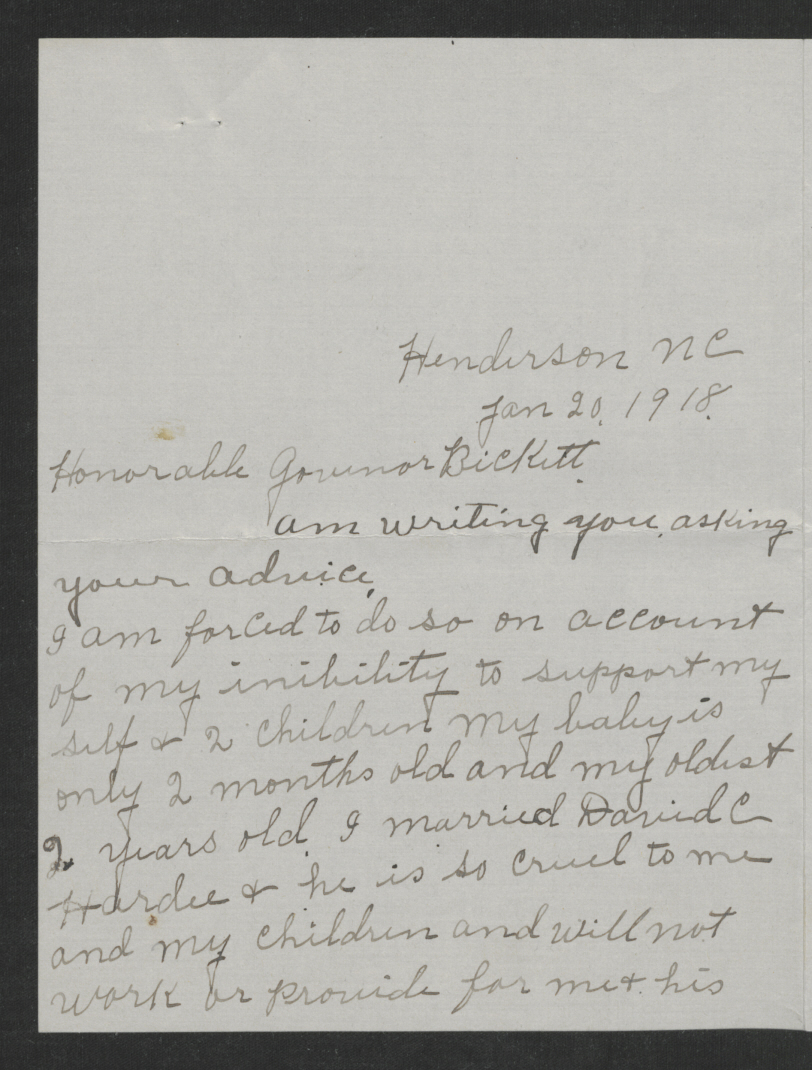 Henderson NC
Jan 20, 1918.
Honorable Govenor Bickett.
am writing you, asking
your advice,
I am forced to do so on account
of my inibility to support my
self & 2 children my baby is
only 2 months old and my oldest
2 years old. I married David C
Hardee & he is so cruel to me
and my children and will not
work or provide for me & his